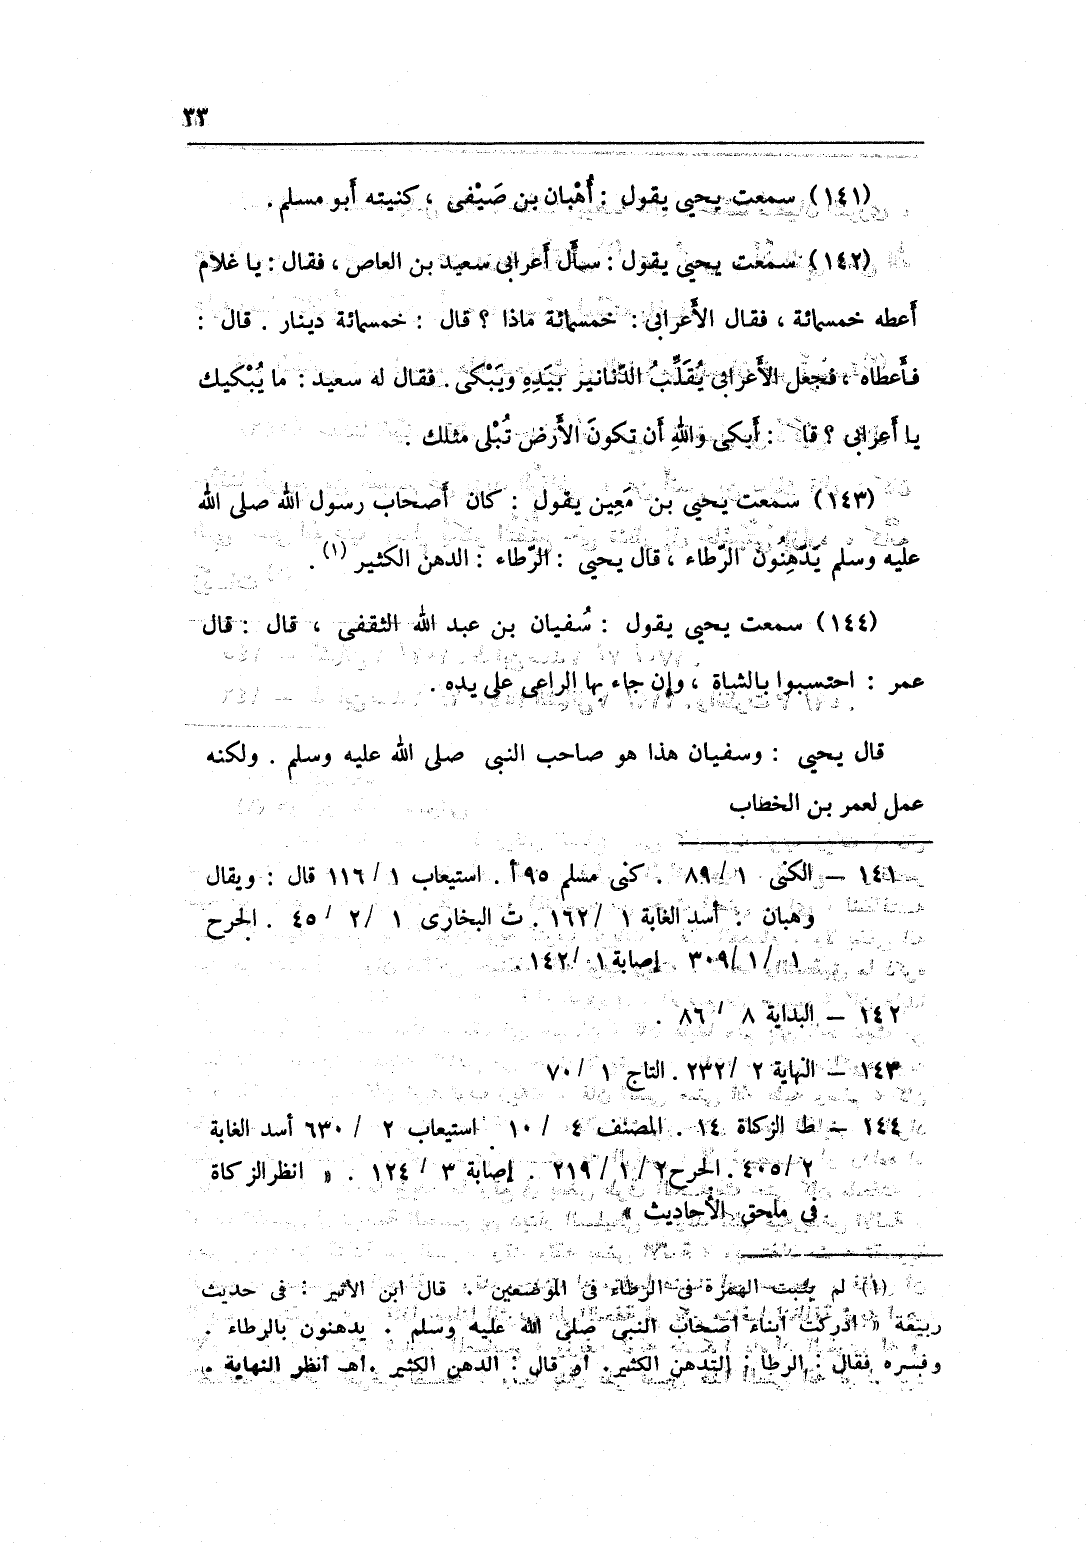 ٣٣
(١٤١) سمعت يحيى يقول : أُهْبان بن صَيْفى ، كنيته أَبو مسلم .
(١٤٢) سمعت يحيى يقول : سأَل أَعرابى سعيد بن العاص ، فقال : يا غلام
أَعطه خمسمائة ، فقال الأَعرابى : خمسمائة ماذا ؟ قال : خمسمائة دينار . قال :
فأَعطاه ، فجعل الأَعرابى يُقَلِّبُ الدَّنانير بيَدِهِ ويَبْكى . فقال له سعيد : ما يُبْكيك
يا أَعرابى ؟ قا : أَبكى واللهِ أَن تكونَ الأَرض تُبْلى مثلك .
(١٤٣) سمعت يحيى بن مَعِين يقول : كان أَصحاب رسول الله صلى الله
عليه وسلم يَدَّهِنُون الرّطاء ، قال يحيى : الرّطاء : الدهن الكثير (١) .
(١٤٤) سمعت يحيى يقول : سُفيان بن عبد الله الثقفى ، قال : قال
عمر : احتسبوا بالشاة ، وإن جاء بها الراعى على يده .
قال يحيى : وسفيان هذا هو صاحب النبى صلى الله عليه وسلم . ولكنه
عمل لعمر بن الخطاب
١٤١ – الكنى ١ / ٨٩ . كنى مسلم ٩٥ أ . استيعاب ١ / ١١٦ قال : ويقال
وهبان : أسد الغابة ١ / ١٦٢ . ت البخارى ١ / ٢ / ٤٥ . الجرح
١ / ١ / ٣٠٩ إصابة ١ / ١٤٢ .
١٤٢ – البداية ٨ / ٨٦ .
١٤٣ – النهاية ٢ / ٢٣٢ . التاج ١ / ٧٠
١٤٤ – ط الزكاة ١٤ . المصنف ٤ / ١٠ استيعاب ٢ / ٦٣٠ أسد الغابة
٢ / ٤٠٥ . الجرح ٢ / ١ / ٢١٩ . إصابة ٣ / ١٢٤ . « انظر الزكاة
فى ملحق الأحاديث »
(١) لم يثبت الهمزة فى الرطاء فى الموضعين . قال ابن الأثير : فى حديث
ربيعة « أدركت أبناء أصحاب النبى صلى الله عليه وسلم . يدهنون بالرطاء .
وفسره فقال : الرطا : التدهن الكثير . أو قال : الدهن الكثير . اهـ انظر النهاية .